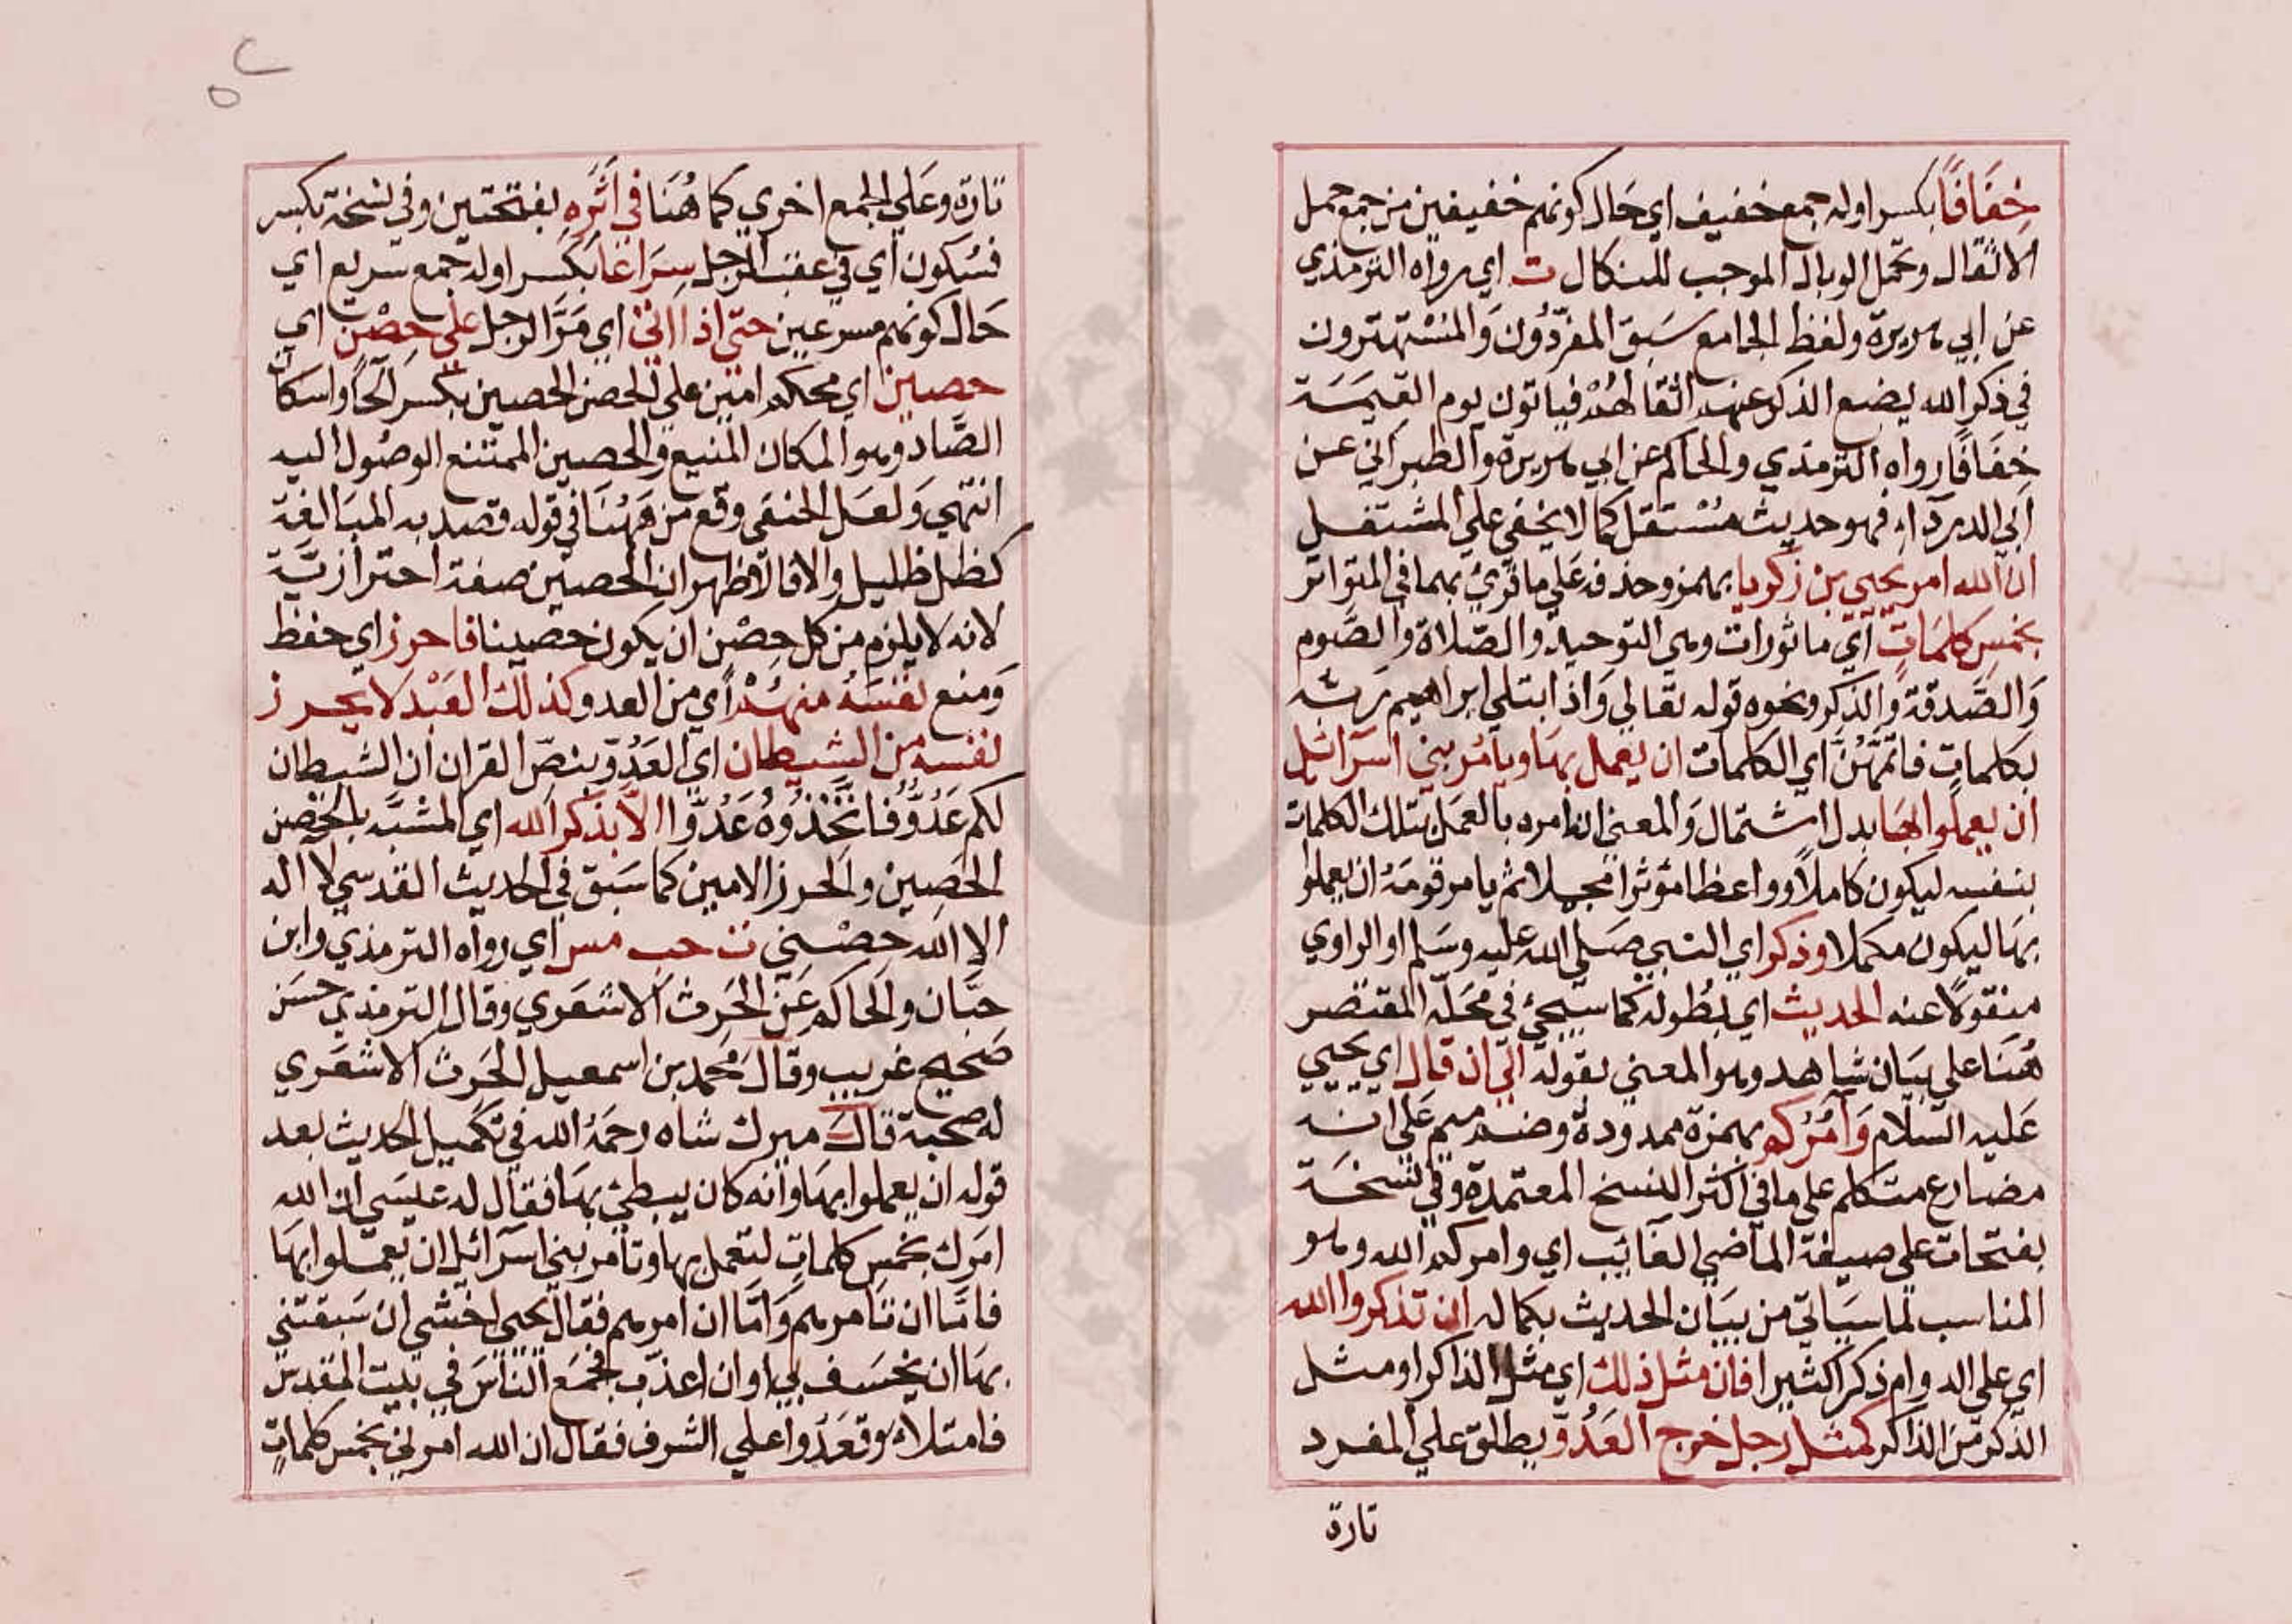 خِفَافًا بكسر اوله جمع خفيف اي حَال كونهم خفيفين من جمع حمل
الاثقال وتحمل الوبال الموجب للنكال ت اي رواه الترمذي
عن ابي هريرة ولفظ الجامع سَبقَ المفرّدُون وَالمُسْتهترون
في ذكر الله يضع الذكر عنهم اثقالهُمْ فياتون يوم القيمَة
خِفَافًا رواه الترمذي والحاكم عن ابي هريرة والطبراني عن
ابي الدرداء فهو حديث مُسْتقل كما لا يخفي علي المشتغل
ان الله امر يحيي بن زكريا بهمز وحذفه عَلي ما قرئ بهما في المتواتر
بخمس كلمَاتٍ اي ماثورات وهي التوحيد والصّلاة والصَّوم
وَالصَّدقة والذكر ونحوه قوله تقالي وَاذ ابتلي ابراهيم رَبّه
بكلماتٍ فاتمَّهُنَّ اي الكلمات ان يعمل بهَا ويَامُر بني اسرَائيل
ان يعملوا بهَا بدل اشتمال وَالمعني انه امره بالعمَل بتلك الكلمات
بنفسه ليكون كاملاً وواعظا مؤثرا مجملا ثم يامر قومَهُ ان يعملوا
بهَا ليكون مكملا وذكر اي النبي صَلي الله عليه وسَلم او الراوي
منقولاً عنه الحديث اي بطُوله كما سَيجئ في مَحَلّه المقتصر
هُنَا علي بيَان شاهد وهو المعني بقوله الي ان قال اي يحيي
عَليه السّلام وَآمُرُكم بهمزة ممدودة وضم ميم عَلي انه
مضارع متكلم علي ما في اكثر النسخ المعتمدة وفي نسخَة
بفتحات علي صيغة الماضي الغائب اي وامركم الله وهو
المناسب لماسيَاتي من بيَان الحديث بكماله ان تذكروا الله
اي علي الدوام ذكرا كثيرا فان مثل ذلك اي مثل الذاكر او مثل
الذكر من الذاكر كمثل رجل خرج العَدُوّ يطلق علي المفرد
تارة
تارة وعَلي الجمع اخري كما هُنَا في اَثَرِهِ بفتحتين وفي نسخة بكسر
فسُكون اي في عقب الرجل سِرَاعًا بكسر اوله جمع سريع اي
حَال كونهم مسرعين حتّي اذا اتي اي مَرَّ الرجل علي حِصْن اي
حصين اي محكم امين علي الحصن الحصين بكسر الحا واسكان
الصَّاد وهو المكان المنيع والحصين الممتنع الوصُول اليه
انتهي وَلعَل الحنفي وقع من هَهُنَا في قوله قصد به المبَالغة
كظل ظليل والا فالاظهر ان الحصين صفة احترازيَّة
لانه لا يلزم من كل حِصْن ان يكون حَصينا فاحرز اي حفظ
وَمنع نفسَهُ منهُمْ اي من العدو وكذلك العَبْد لا يحرز
نفسه من الشيطان اي العَدُوّ بنصّ القران ان الشيطان
لكم عَدُوٌّ فاتَّخِذُوهُ عَدُوًّا الاّ بذكر الله اي المشبَّه بالحِصن
الحَصِين والحرز الامين كما سَبق في الحديث القدسي لا اله
الا الله حصْني ت حب مس اي رواه الترمذي وابن
حبَّان والحَاكم عَن الحَرث الاشعَري وقال الترمذي حسَن
صَحيح غريب وقالَ محمد بن اسمعيل الحَرث الاشعَري
له صحبة قالَ ميرك شاه رحمَهُ الله في تكميل الحديث بعد
قوله ان يعملوا بهَا وانه كان يبطئ بهَا فقال له عيسَي ان الله
امرَك بخمس كلماتٍ لتعمل بها وتامر بني اسرائيل ان يَعمَلوا بهَا
فامّا ان تامرهم وَامّا ان امرهم فقال يحيي اخشي ان سَبقتني
بهَا ان يخسَف بي او ان اعذّب فجمَع النَّاسَ في بيت المقدس
فامتلاء وقعَدُوا علي الشرف فقال ان الله امرني بخمس كلماتٍ